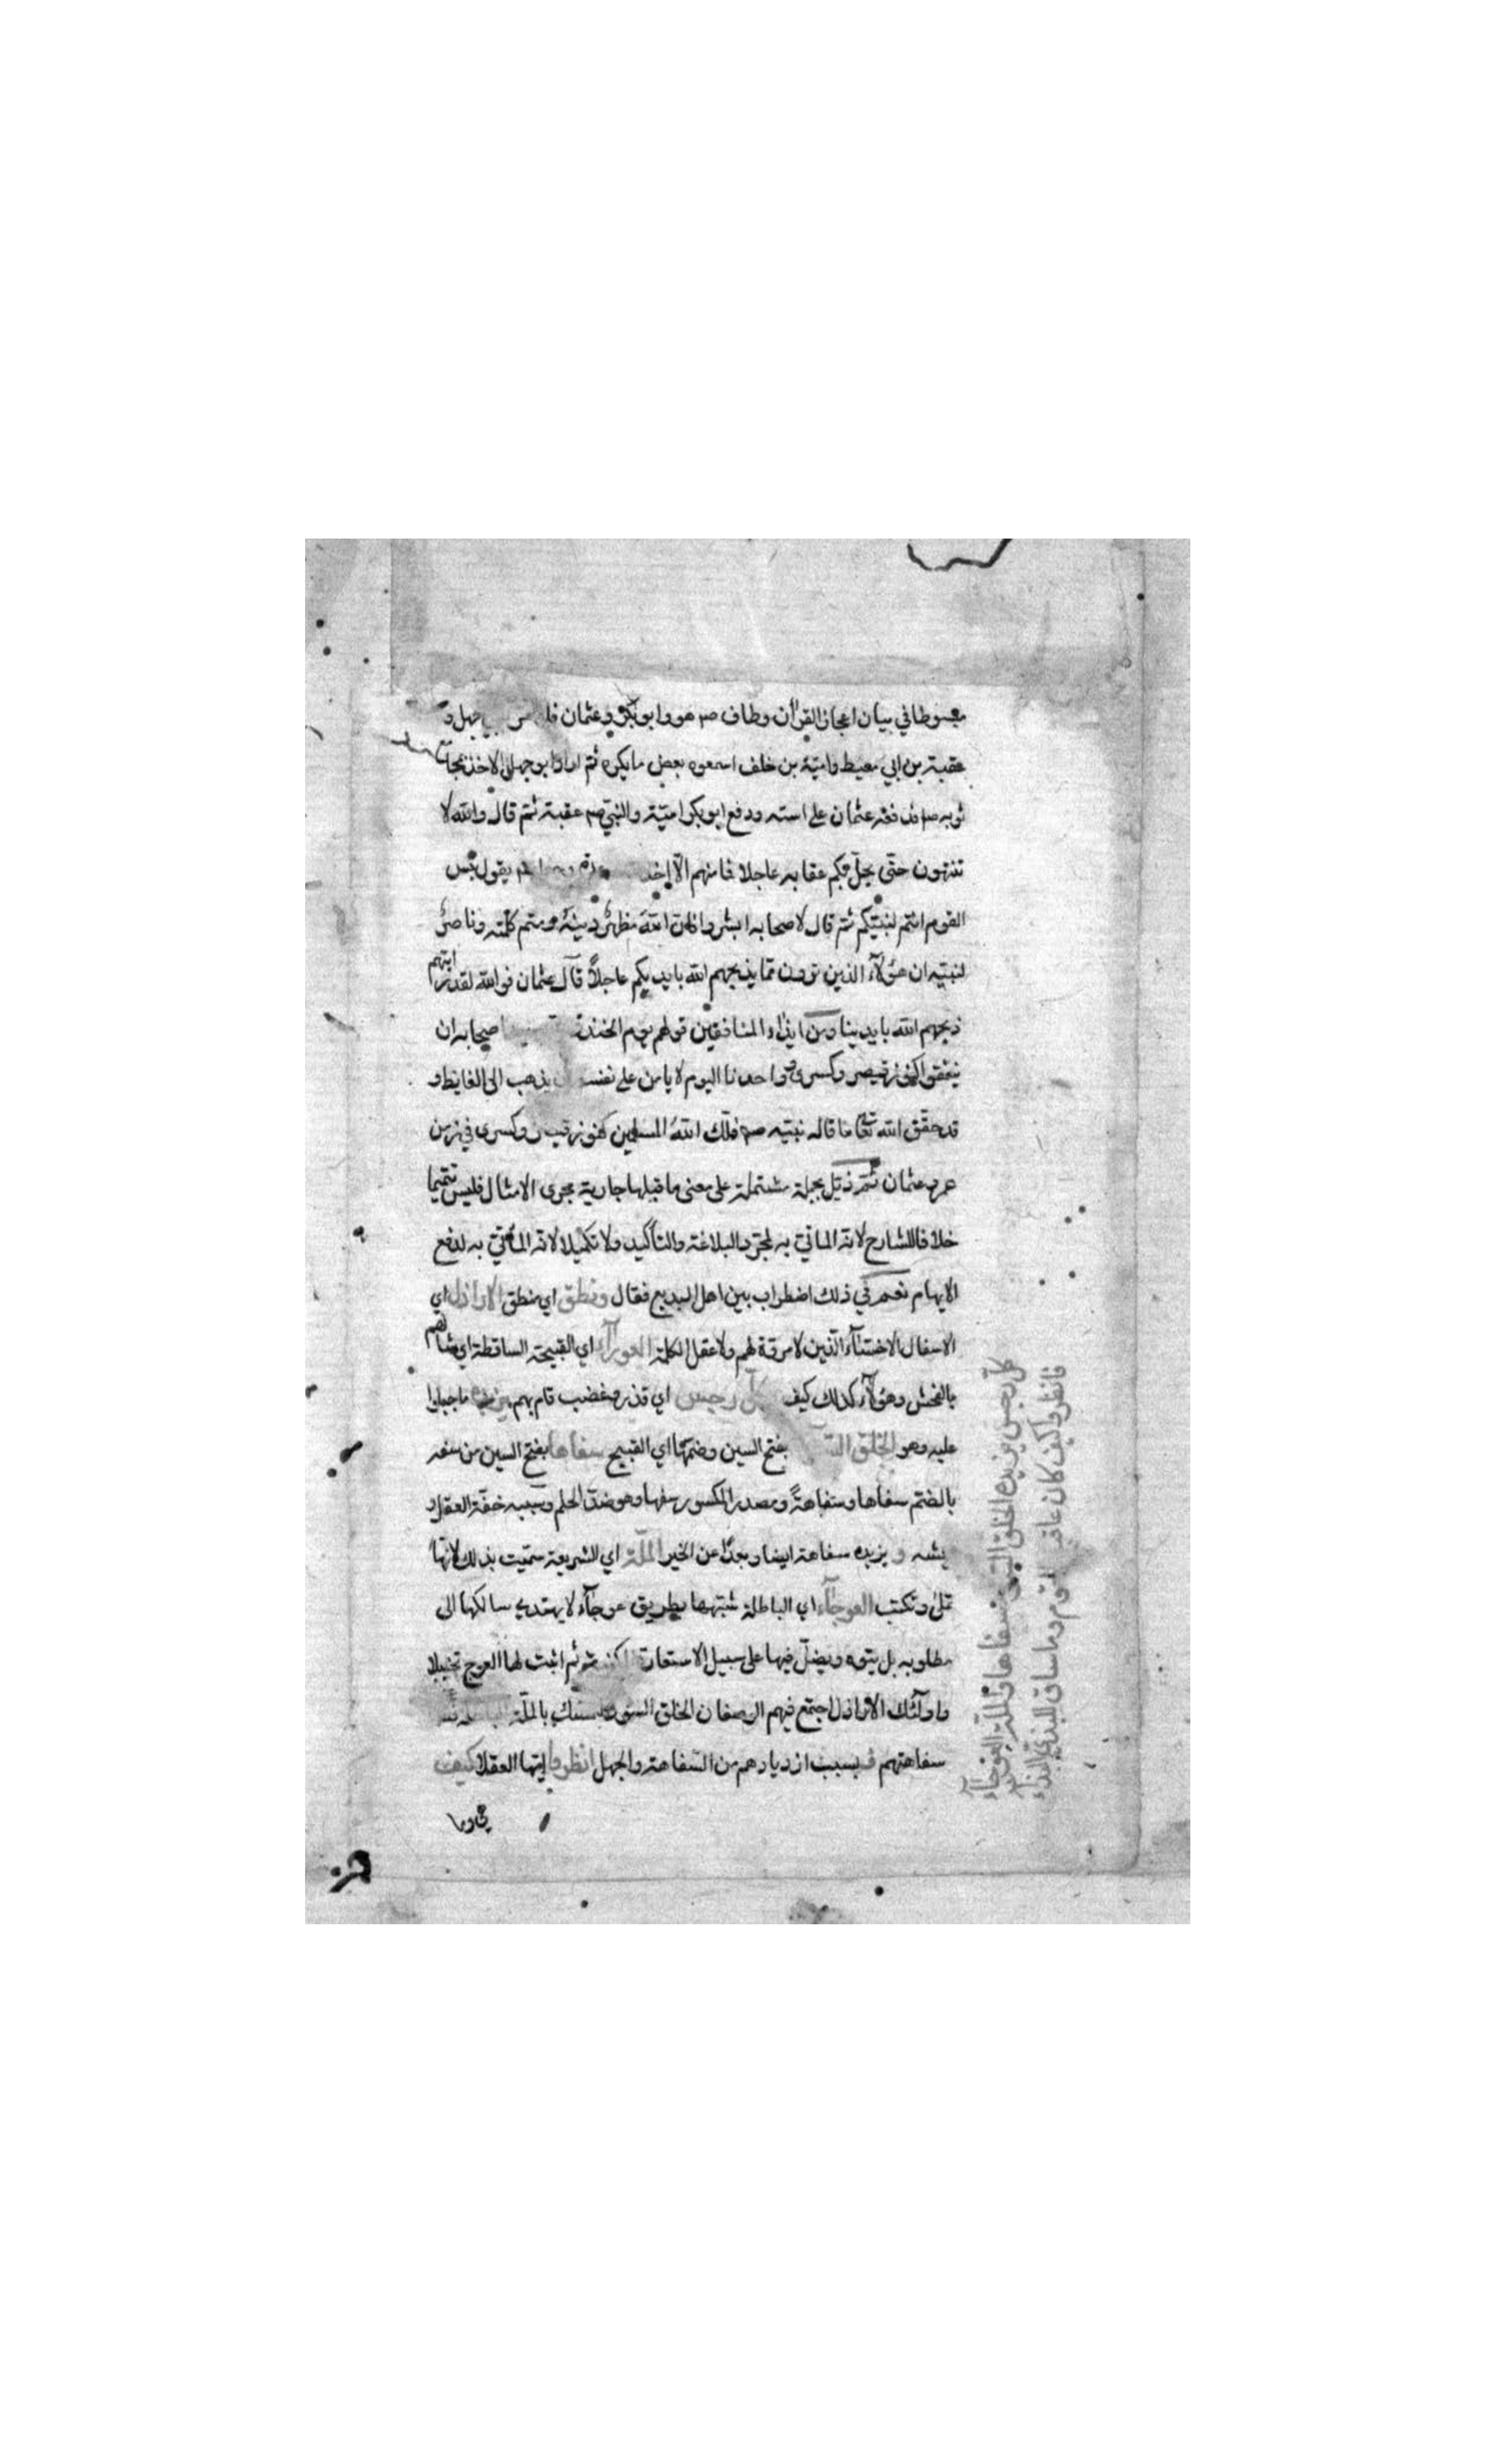 مبسوطا في بيان اعجاز القرآن وطاف صم هو وابو بكر وعثمان جهل و
عقبة بن ابي معيط وامية بن خلف اسمعوه بعض ما يكره ثم اراد ابو جهل الاخذ بمجامع
ثوبه صم فدفعه عثمان على استه ودفع ابو بكر امية والنبي صم عقبة ثم قال والله لا
تنتهون حتى يحل بكم عقابه عاجلا فما منهم الا اخذ يقول بئس
القوم انتم لنبيكم ثم قال لاصحابه ابشروا فان الله مظهر دينه ومتم كلمته وناصر
لنبيه ان هؤلآء الذين ترون مما يذبحهم الله بايديكم عاجلا قال عثمان فوالله لقد رايتهم
ذبحهم الله بايدينا ومن ايذاء المنافقين قولهم يوم الخندق اصحابه ان
ينفقوا كنوز قيصر وكسرى وواحدنا اليوم لا يامن على نفسه يذهب الى الغايط و
قد حقق الله تعا ما قاله نبيه صم فملك الله المسلمين كنوز قيصر وكسرى في زمن
عمر وعثمان ثم ذيل بجملة مشتملة على معنى ما قبلها جارية مجرى الامثال فليس تتميما
خلافا للشارح لانه الماتي به لمجرد البلاغة والتأكيد ولا تكميلا لانه المأتي به لدفع
الايهام نعم في ذلك اضطراب بين اهل البديع فقال ونطق اي منطق الاراذل اي
الاسفال الاخسآء الذين لا مروة لهم ولا عقل الكلمة العورآء اي القبيحة الساقطة اي شانهم
بالفحش وهؤلآء كذلك كيف وكل رجس اي قذر وغضب قام بهم يزيده ما جبلوا
عليه وهو الخلق السوء بفتح السين وضمها اي القبيح سفاها بفتح السين من سفه
بالضم سفاها وسفاهة ومصدر المكسور سفها وهو ضد الحلم وسببه خفة العقل و
يشه و يزيده سفاهة ايضا وبعدا عن الخير الملة اي الشريعة سميت بذلك لانها
تملى وتكتب العوجآء اي الباطلة شبهها بطريق عوجآء لا يهتدي سالكها الى
مطلوبه بل يتوه ويضل فيها على سبيل الاستعارة ثم اثبت لها العوج تخييلا
واولئك الاراذل اجتمع فيهم الوصفان الخلق السوء بالملة
سفاهتهم فبسبب ازديادهم من السفاهة والجهل انظروا ايها العقلا كيف
كل رجس يزيده الخلق السوء سفاها والملة العوجآء
فانظروا كيف كان عاقبة القوم وما ساق للبذي البذآء